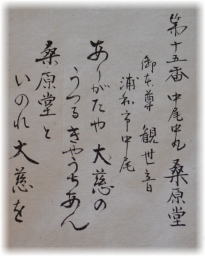 第十五番 中尾中丸 桑原堂
御本尊 観世音
浦和市中尾
ありがたや 大慈の
うつるきやうちあん
桑原堂と
いのれ 大慈を